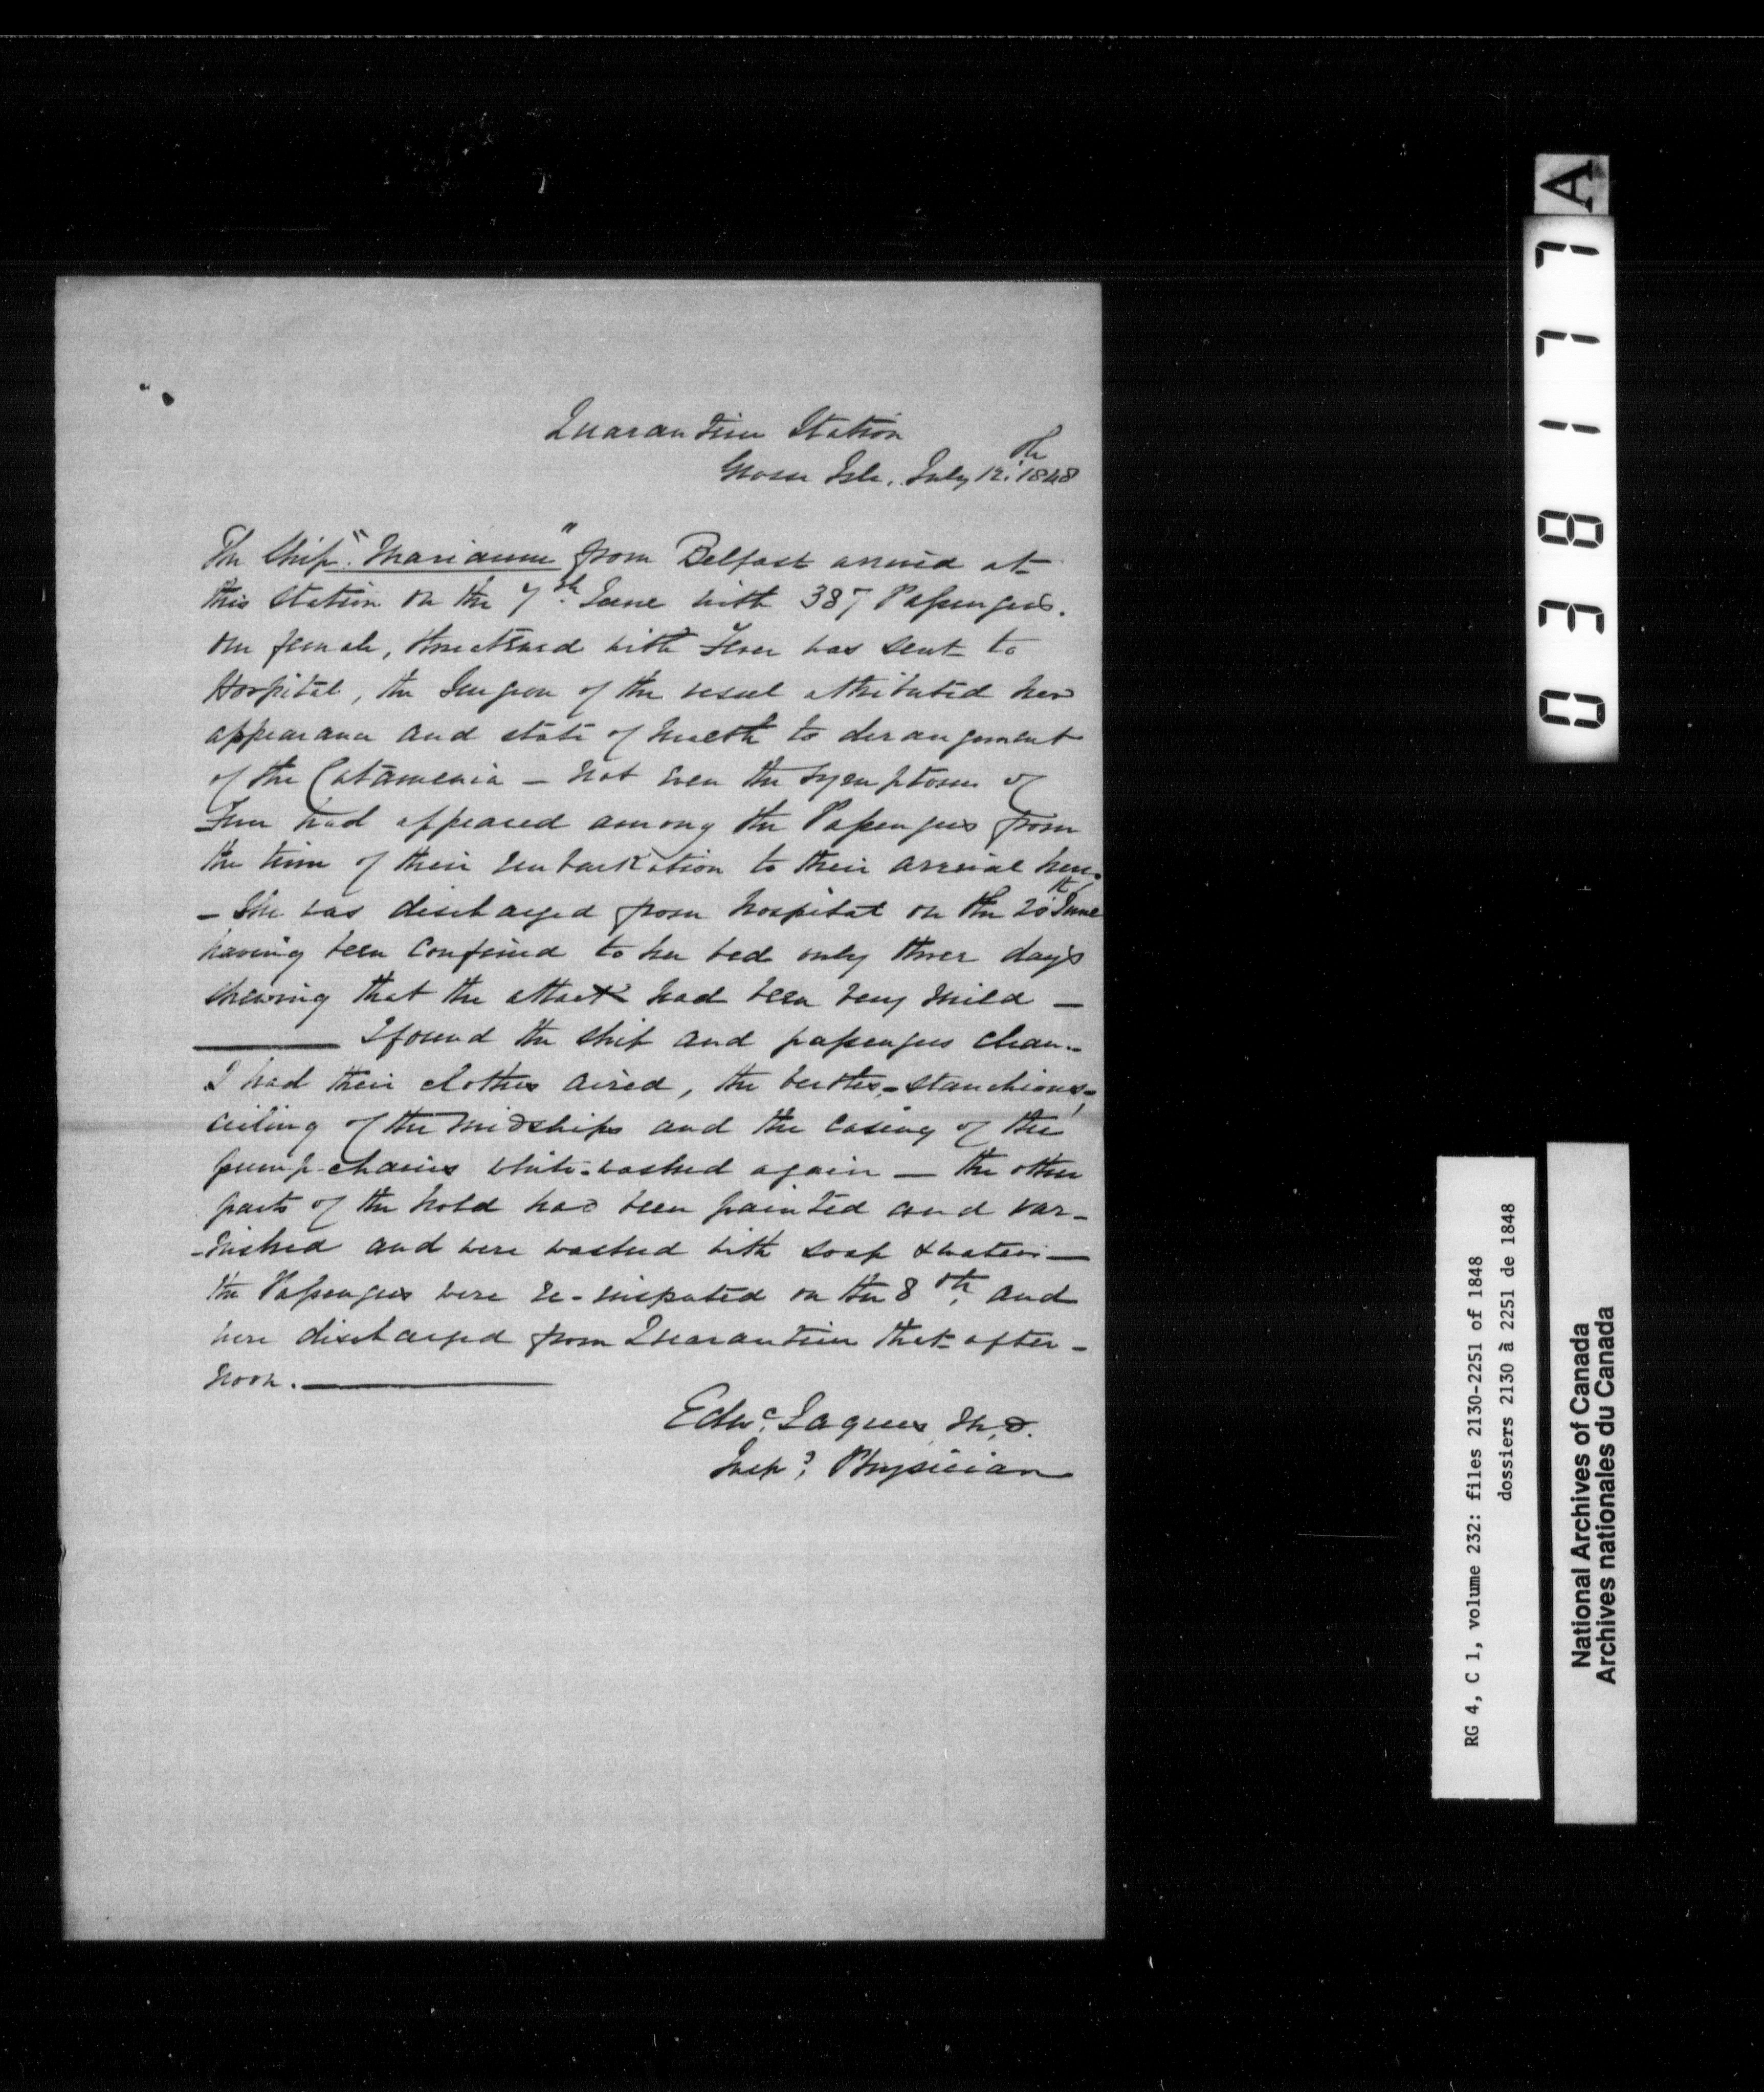 Quarantine Station
Grosse Isle, July 12.th 1848
The Ship "Marianne" from Belfast arrived at
this Station on the 7th. June with 387 Passengers.
One female, threatened with Fever was sent to
Hospital, the Surgeon of the vessel attributed her
appearance and state of health to derangement
of the Catamenia — not even the symptoms of
Fever had appeared among the Passengers from
the time of their embarkation to their arrival here.
— She was discharged from hospital on the 20th June
having been confined to her bed only three days
shewing that the attack had been very mild —
——— I found the ship and passengers clean.-
I had their clothes aired, the berths,-stanchions,-
ceiling of the midships and the casing of the
pump-chains white-washed again — the other
parts of the hold had been painted and var-
-nished and were washed with soap & water —
the Passengers were re-inspected on the 8th. and
were discharged from Quarantine that after-
noon. ———
Edwd. Jaques, M.D.
Insp. Physician
A
038177
RG 4, C 1, volume 232: files 2130-2251 of 1848
dossiers 2130 à 2251 de 1848
National Archives of Canada
Archives nationales du Canada